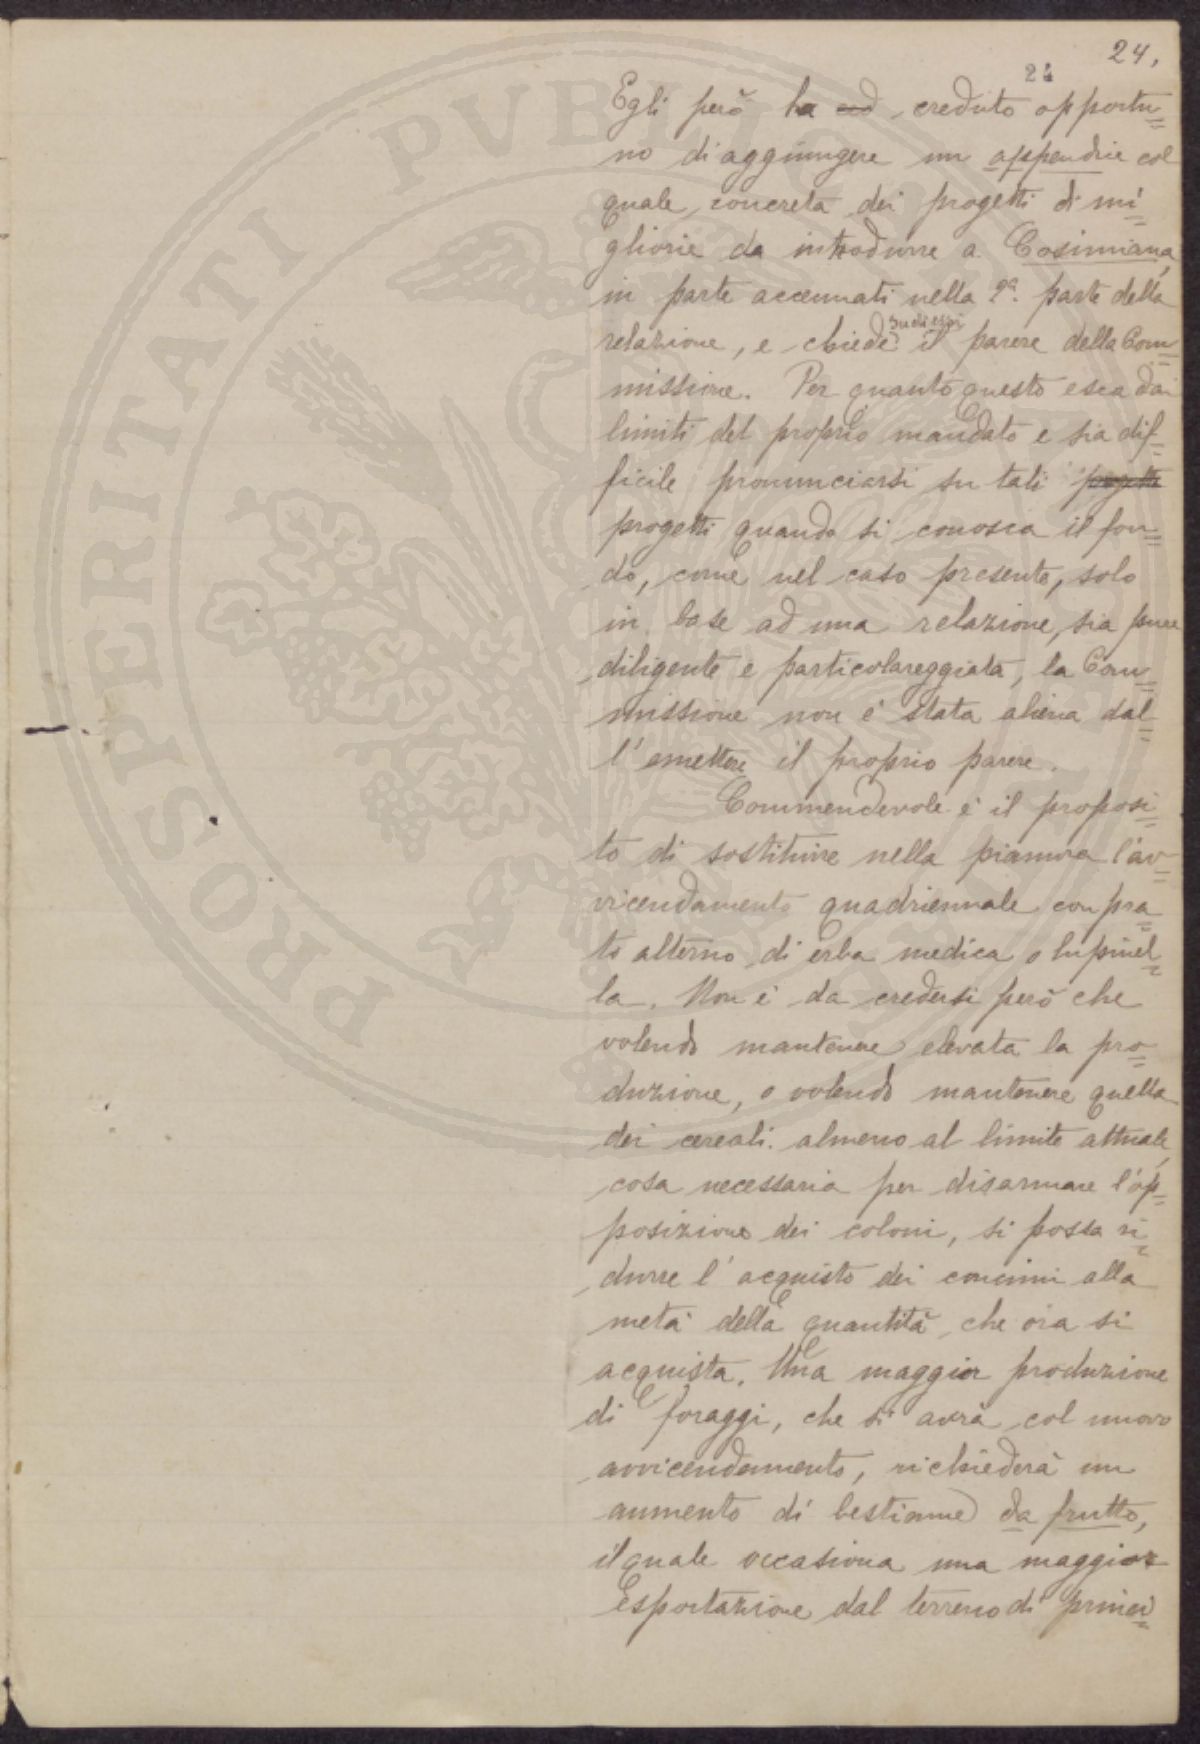 24.
24
Egli però ha creduto opportu=
no di aggiungere un appendice col
quale concreta dei progetti di mi=
gliorie da introdurre a Cosimiana,
in parte accennati nella 2ª parte della
relazione, e chiede su di essi il parere della Com=
missione. Per quanto questo esca dai
limiti del proprio mandato e sia dif=
ficile pronunciarsi su tali progetti
progetti quando si conosca il fon=
do, come nel caso presente, solo
in base ad una relazione, sia pure
diligente e particolareggiata, la Com=
missione non è stata aliena dal=
l'emettere il proprio parere.
Commendevole è il proposi=
to di sostituire nella pianura l'av=
vicendamento quadriennale con pra=
to alterno di erba medica o lupinel=
la. Non è da credersi però che
volendo mantenere elevata la pro=
duzione, o volendo mantenere quella
dei cereali almeno al limite attuale,
cosa necessaria per disarmare l'op=
posizione dei coloni, si possa ri=
durre l'acquisto dei concimi alla
metà della quantità che ora si
acquista. Una maggior produzione
di foraggi, che si avrà col nuovo
avvicendamento, richiederà un
aumento di bestiame da frutto,
il quale occasiona una maggior
esportazione dal terreno di princi=
PROSPERITATI PVBLICAE